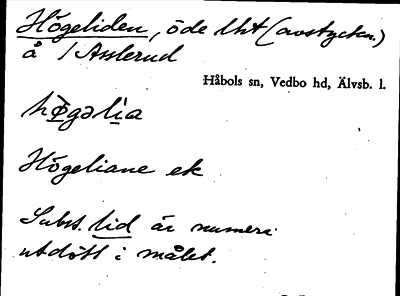 Högeliden, öde lht (avstyckn.)
å 1 Asslerud
Håbols sn, Vedbo hd, Älvsb. l.
hø̀gəli̬a
Högeliane ek
Subst. lid är numera
utdött i målet.